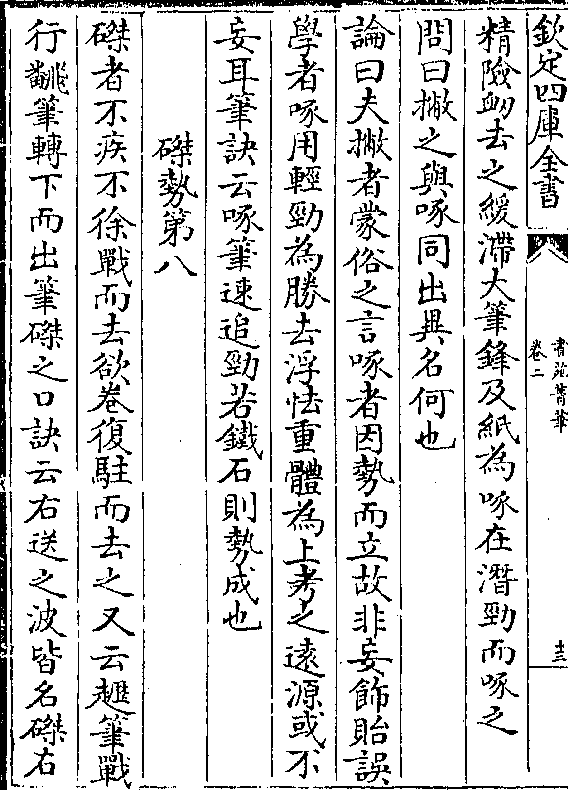 欽定四庫全書
書苑菁華
卷二
十三
精險衂去之緩滯大筆鋒及紙為啄在潛勁而啄之
問曰撇之與啄同出異名何也
論曰夫撇者蒙俗之言啄者因勢而立故非妄飾貽誤
學者啄用輕勁為勝去浮怯重體為上考之遠源或不
妄耳筆訣云啄筆速追勁若鐵石則勢成也
磔勢第八
磔者不疾不徐戰而去欲卷復駐而去之又云趯筆戰
行翻筆轉下而出筆磔之口訣云右送之波皆名磔右